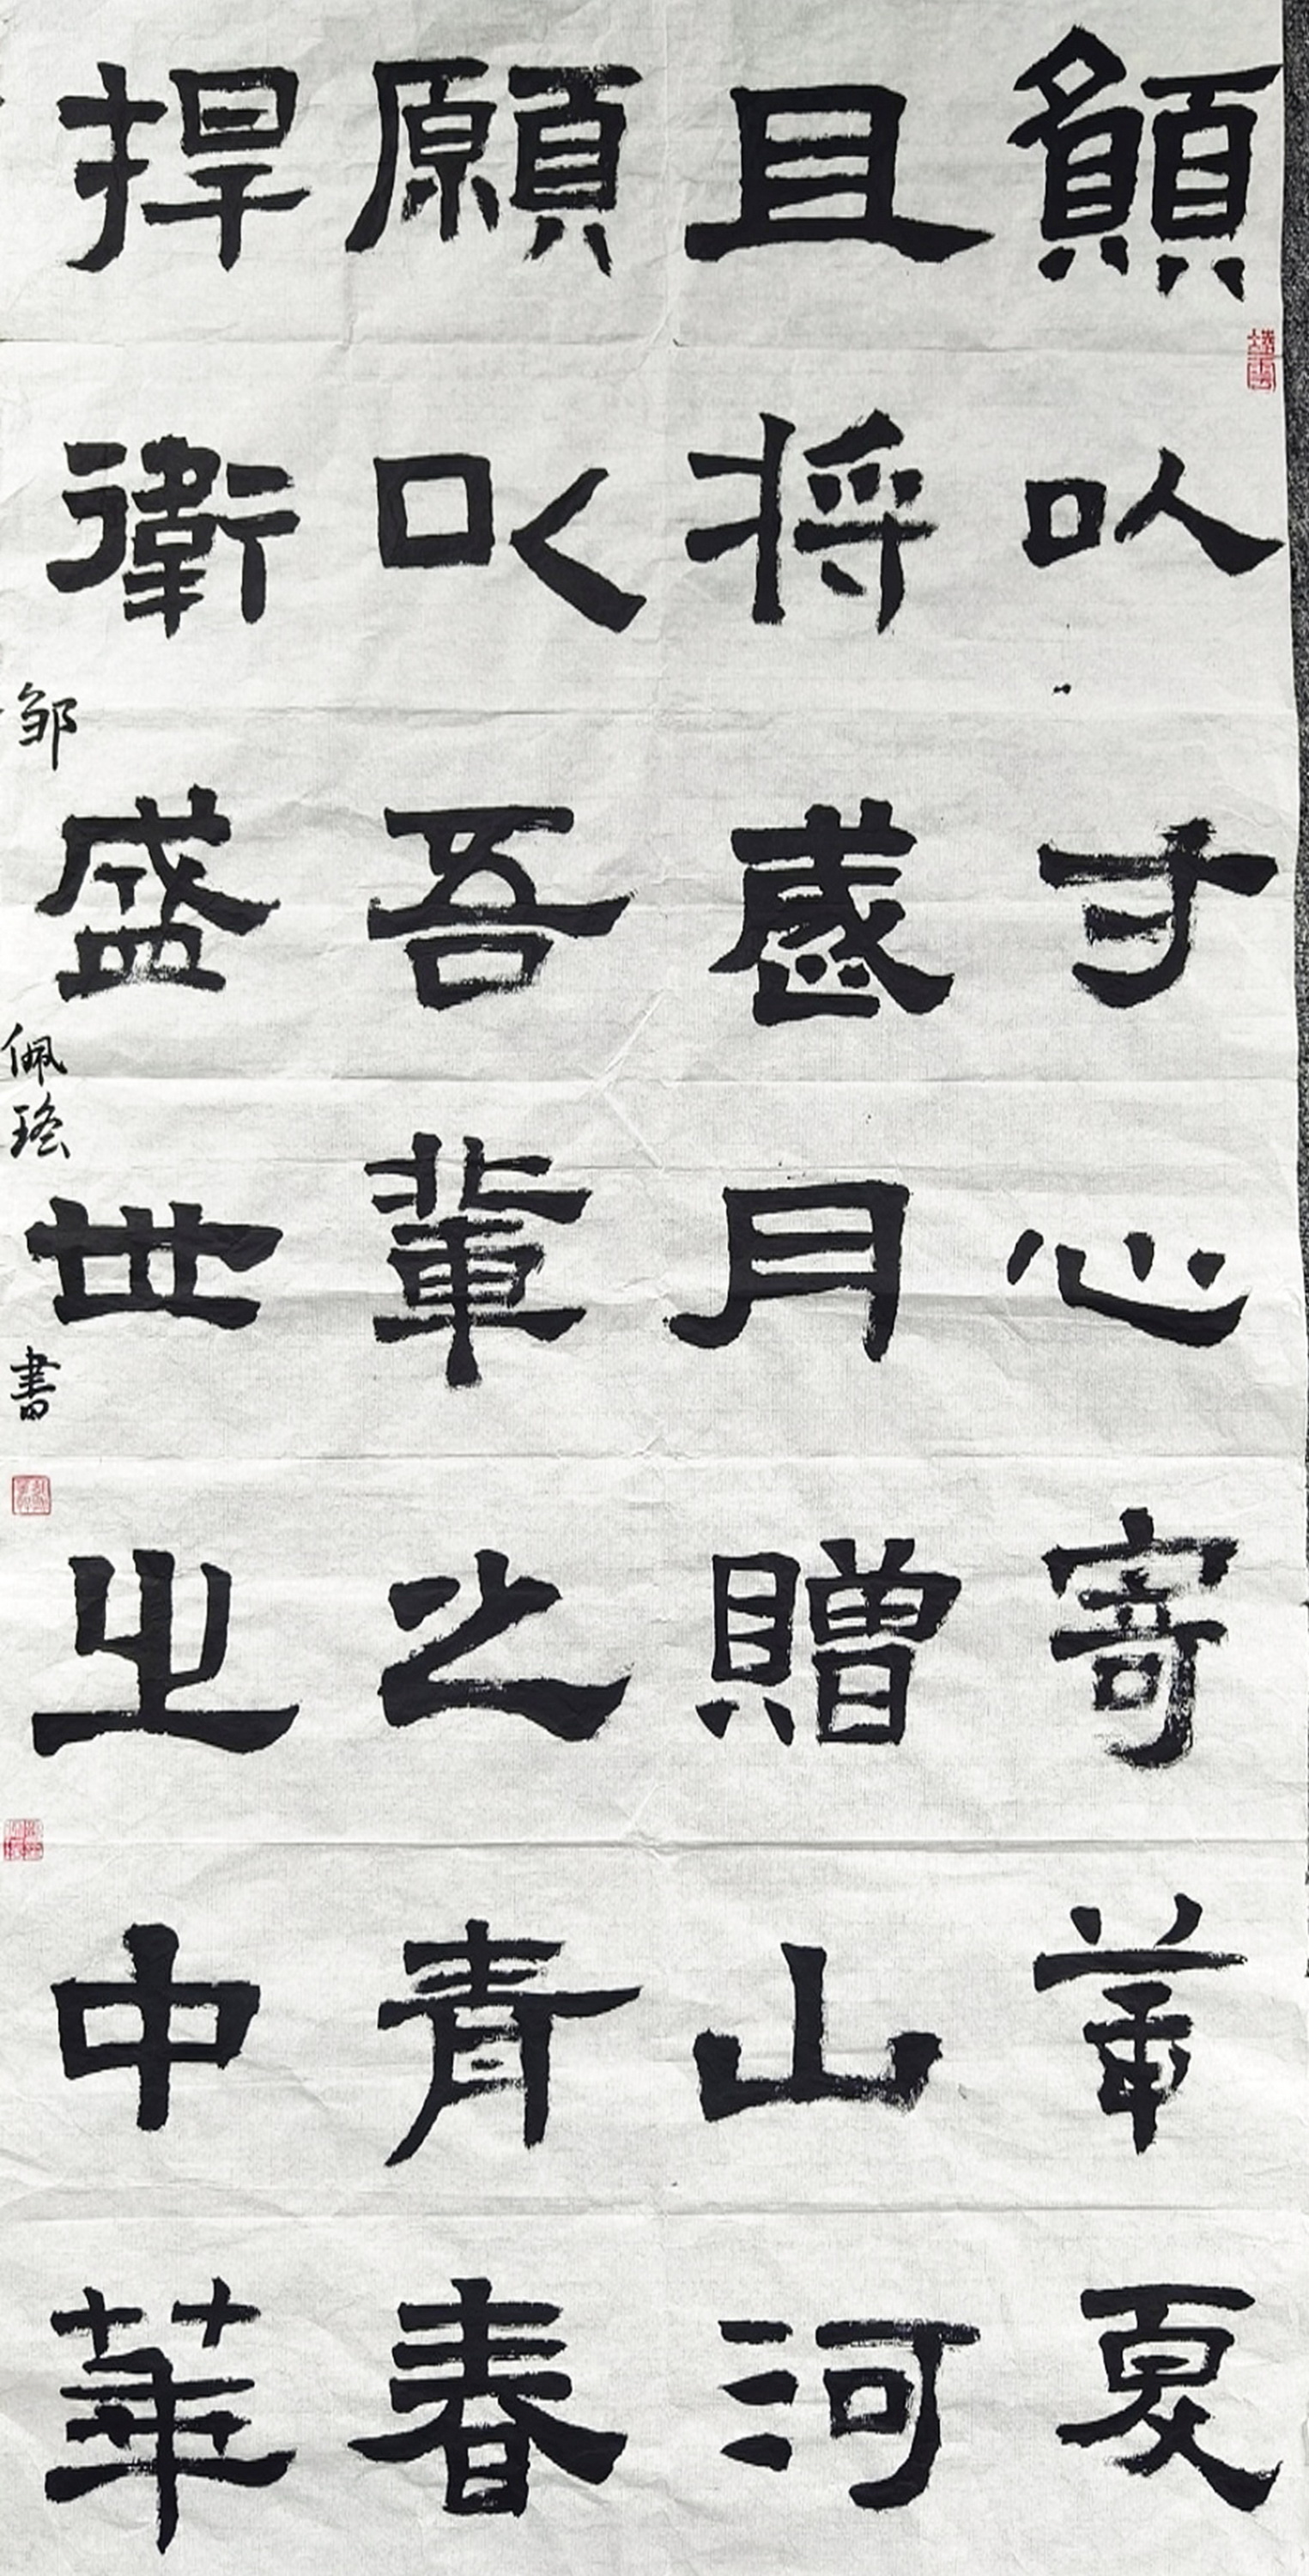 願以寸心寄華夏
且將歲月贈山河
願以吾輩之青春
捍衛盛世之中華
邹佩瑶書